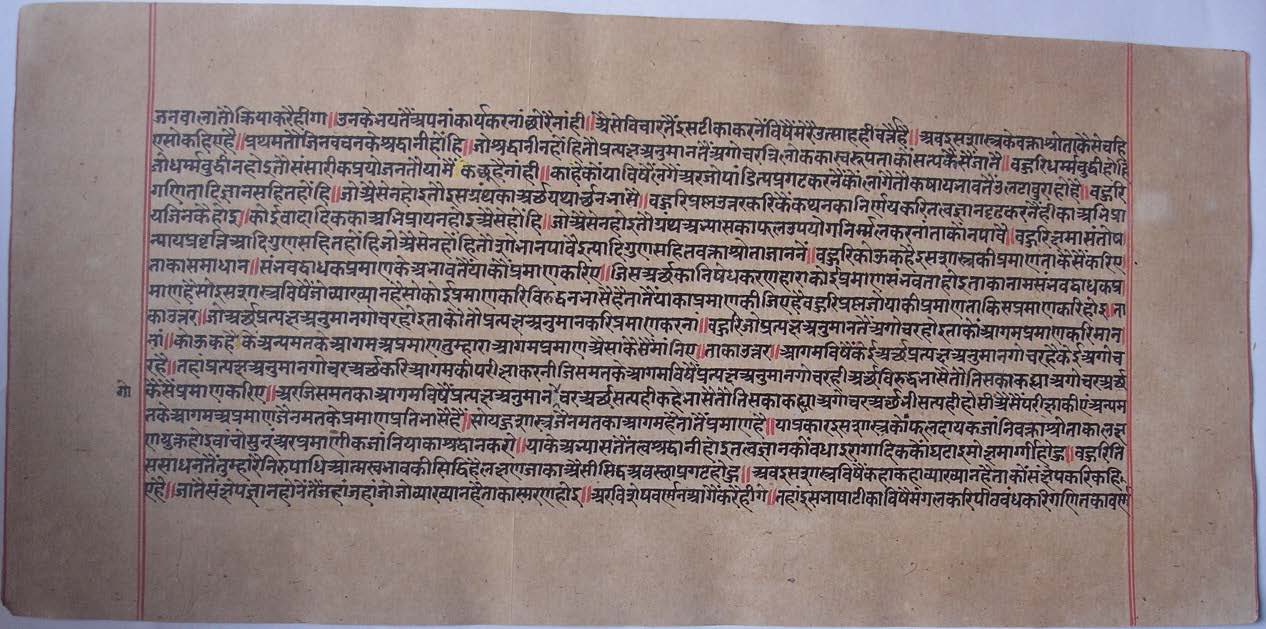 जनवालातौ क्रिया करैहीगा॥ उनके भयतैं अपनां कार्य करनां छोरैनांही॥ अैसे विचारतैं इस टीका करनेंविषैं मेरै उत्साह ही वर्त्तैहै॥ अब इस शास्त्रके वक्ता श्रोता कैसे चहि
ए सो कहिएहै॥ प्रथम तौ जिनवचनके श्रद्धानी होंहि॥ जो श्रद्धानी न होंहि तौ प्रत्यक्ष अनुमानतैं अगोचर त्रिलोकका स्वरूप ताकौं सत्य कैसें जानें॥ बहुरि धर्म्मबुद्धी होंहि
जो धर्म्मबुद्धी न होइ तौ संसारीक प्रयोजन तौ यामैं कछु है नांही॥ काहेकौं याविषैं लगै अर जो पांडित्य प्रगट करनेकौं लागै तौ कषायभावतैं उलटा बुरा होहै॥ बहुरि
गणितादि ज्ञानसहित होंहि॥ जो अैसे न होइ तौ इस ग्रंथका अर्थ यथार्थ न भासै॥ बहुरि प्रश्न उत्तर करिकें कथनका निर्णय करि तत्वज्ञान दृढ करनेंहीका अभिप्रा
य जिनकै होइ॥ कोई वादादिकका अभिप्राय न होइ अैसे होंहि॥ जो अैसे न होइ तौ ग्रंथ अभ्यासका फल उपयोग निर्म्मल करनां ताकौं न पावै॥ बहुरि क्षमा संतोष
न्यायप्रवृत्ति आदि गुणसहित होंहि जो अैसे न होंहि तौ शोभा न पावैं इत्यादि गुणसहित वक्ता श्रोता जाननें॥ बहुरि कोऊ कहै इस शास्त्रकी प्रमाणता कैसें करिए
ताका समाधान॥ संभवद्बाधक प्रमाणके अभावतैं याकौं प्रमाण करिए॥ जिस अर्थका निषेध करणहारा कोई प्रमाण संभवता होइ ताका नाम संभवद्बाधक प्र
माण है सो इस शास्त्रविषैं जो व्याख्यान है सो कोई प्रमाण करि विरुद्ध न भासै है तातैं याका प्रमाण कीजिए है बहुरि प्रश्न जो याकी प्रमाणता किस प्रमाण करि होइ॥ ता
का उत्तर॥ जो अर्थ प्रत्यक्ष अनुमानगोचर होइ ताकौं तौ प्रत्यक्ष अनुमान करि प्रमाण करनां॥ बहुरि जो प्रत्यक्ष अनुमानतैं अगोचर होइ ताकौं आगम प्रमाण करि मान
नां॥ कोऊ कहै कै अन्यमतकै आगम अप्रमाण तुम्हारा आगम प्रमाण अैसा कैसैं मांनिए॥ ताका उत्तर॥ आगमविषैं केई अर्थ प्रत्यक्ष अनुमानगोचर हैं केई अगोच
र हैं॥ तहां प्रत्यक्ष अनुमानगोचर अर्थ करि आगमकी परीक्षा करनी जिस मतके आगमविषैं प्रत्यक्ष अनुमानगोचरही अर्थ विरुद्ध भासै तौ तिसका कह्या अगोचर अर्थ
कैसैं प्रमाण करिए॥ अर जिस मतका आगमविषैं प्रत्यक्ष अनुमान चर अर्थ सत्य ही कहे भासै तौ तिसका कह्या अगोचर अर्थ भी सत्य ही होसी अैसैं परीक्षा कीएं अन्यम
गो
तके आगम अप्रमाण जैनमतके प्रमाण प्रतिभासै हैं॥ सो यहु शास्त्र जैनमतका आगम है तातैं प्रमाण है॥ या प्रकार इस शास्त्रकौं फलदायक जांनि वक्ता श्रोताका लक्ष
णयुक्त होइ वाचो सुनूं अर प्रमाणीक जांनि याका श्रद्धान करो॥ याके अभ्यासतैं तत्वश्रद्धानी होइ तत्वज्ञानकौं बधाइ रागादिककौं घटाइ मोक्षमार्गी होहु॥ बहुरि ति
स साधनतैं तुम्हारै निरुपाधि आत्मस्वभावकी सिद्धि है लक्षण जाका अैसी सिद्ध अवस्था प्रगट होहु॥ अब इस शास्त्रविषैं कहा कहा व्याख्यान है ताकौं संक्षेप करि कहि
एहै॥ जातैं संक्षेप ज्ञान होनेतैं जहां जहां जो जो व्याख्यान है ताका स्मरण होइ॥ अर विशेष वर्णन आगैं करैहीगे॥ तहां इस भाषाटीकाविषैं मंगल करि पीठबंध करि गणितका वर्ण